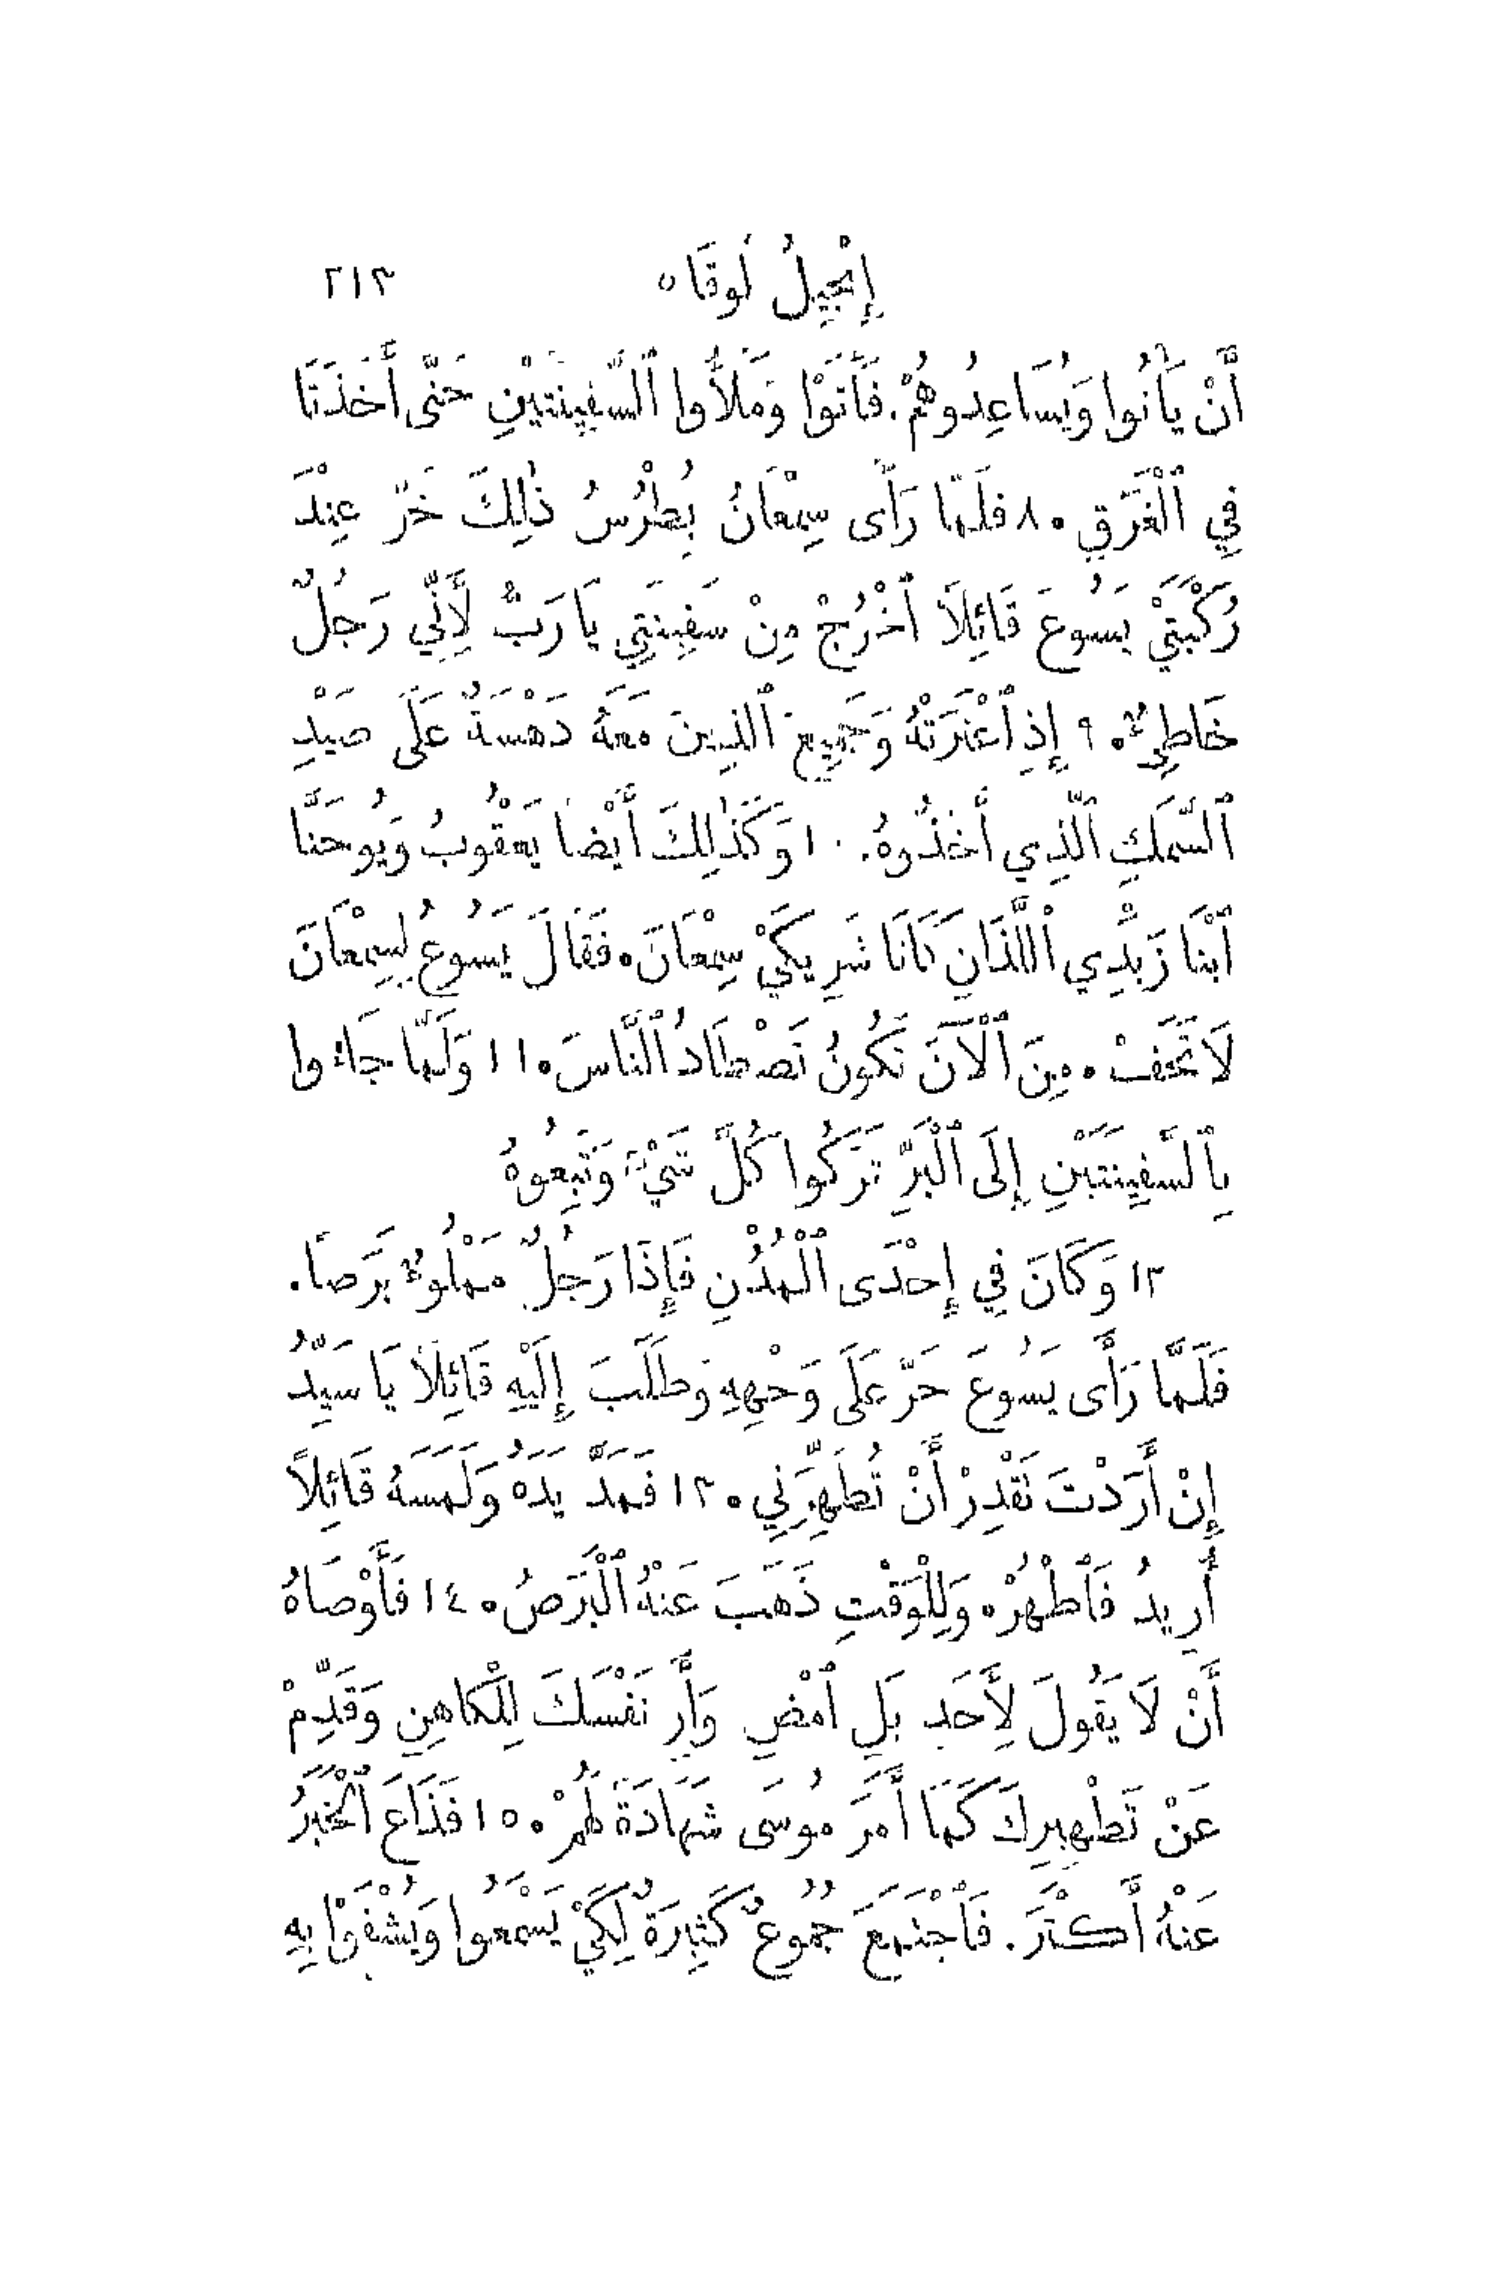 إِنْجِيلُ لُوقَا ٥ ٢١٣
أَنْ يَأْتُوا وَيُسَاعِدُوهُمْ. فَأَتَوْا وَمَلَأُوا ٱلسَّفِينَتَيْنِ حَتَّى أَخَذَتَا
فِي ٱلْغَرَقِ. ٨ فَلَمَّا رَأَى سِمْعَانُ بُطْرُسُ ذٰلِكَ خَرَّ عِنْدَ
رُكْبَتَيْ يَسُوعَ قَائِلًا ٱخْرُجْ مِنْ سَفِينَتِي يَا رَبُّ لِأَنِّي رَجُلٌ
خَاطِئٌ. ٩ إِذِ ٱعْتَرَتْهُ وَجَمِيعَ ٱلَّذِينَ مَعَهُ دَهْشَةٌ عَلَى صَيْدِ
ٱلسَّمَكِ ٱلَّذِي أَخَذُوهُ. ١٠ وَكَذٰلِكَ أَيْضًا يَعْقُوبُ وَيُوحَنَّا
ٱبْنَا زَبْدِي ٱللَّذَانِ كَانَا شَرِيكَيْ سِمْعَانَ. فَقَالَ يَسُوعُ لِسِمْعَانَ
لَا تَخَفْ. مِنَ ٱلْآنَ تَكُونُ تَصْطَادُ ٱلنَّاسَ. ١١ وَلَمَّا جَاءُوا
بِٱلسَّفِينَتَيْنِ إِلَى ٱلْبَرِّ تَرَكُوا كُلَّ شَيْءٍ وَتَبِعُوهُ
١٢ وَكَانَ فِي إِحْدَى ٱلْمُدُنِ فَإِذَا رَجُلٌ مَمْلُوءٌ بَرَصًا.
فَلَمَّا رَأَى يَسُوعَ خَرَّ عَلَى وَجْهِهِ وَطَلَبَ إِلَيْهِ قَائِلًا يَا سَيِّدُ
إِنْ أَرَدْتَ تَقْدِرْ أَنْ تُطَهِّرَنِي. ١٣ فَمَدَّ يَدَهُ وَلَمَسَهُ قَائِلًا
أُرِيدُ فَٱطْهُرْ. وَلِلْوَقْتِ ذَهَبَ عَنْهُ ٱلْبَرَصُ. ١٤ فَأَوْصَاهُ
أَنْ لَا يَقُولَ لِأَحَدٍ بَلِ ٱمْضِ وَأَرِ نَفْسَكَ لِلْكَاهِنِ وَقَدِّمْ
عَنْ تَطْهِيرِكَ كَمَا أَمَرَ مُوسَى شَهَادَةً لَهُمْ. ١٥ فَذَاعَ ٱلْخَبَرُ
عَنْهُ أَكْثَرَ. فَٱجْتَمَعَ جُمُوعٌ كَثِيرَةٌ لِكَيْ يَسْمَعُوا وَيُشْفَوْا بِهِ